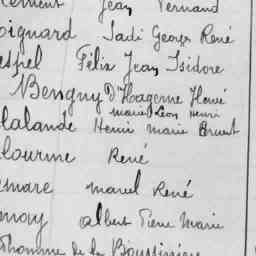 Jean Fernand
oignard Sadi Georges René
espel Félix Jean Isidore
Bengny D'Hagerue Hervé
marie Léon Henri
lalande Henri marie Ernest
lourme René
emare marcel René
emoy albert Pierre Marie
thomme de la Boussinière